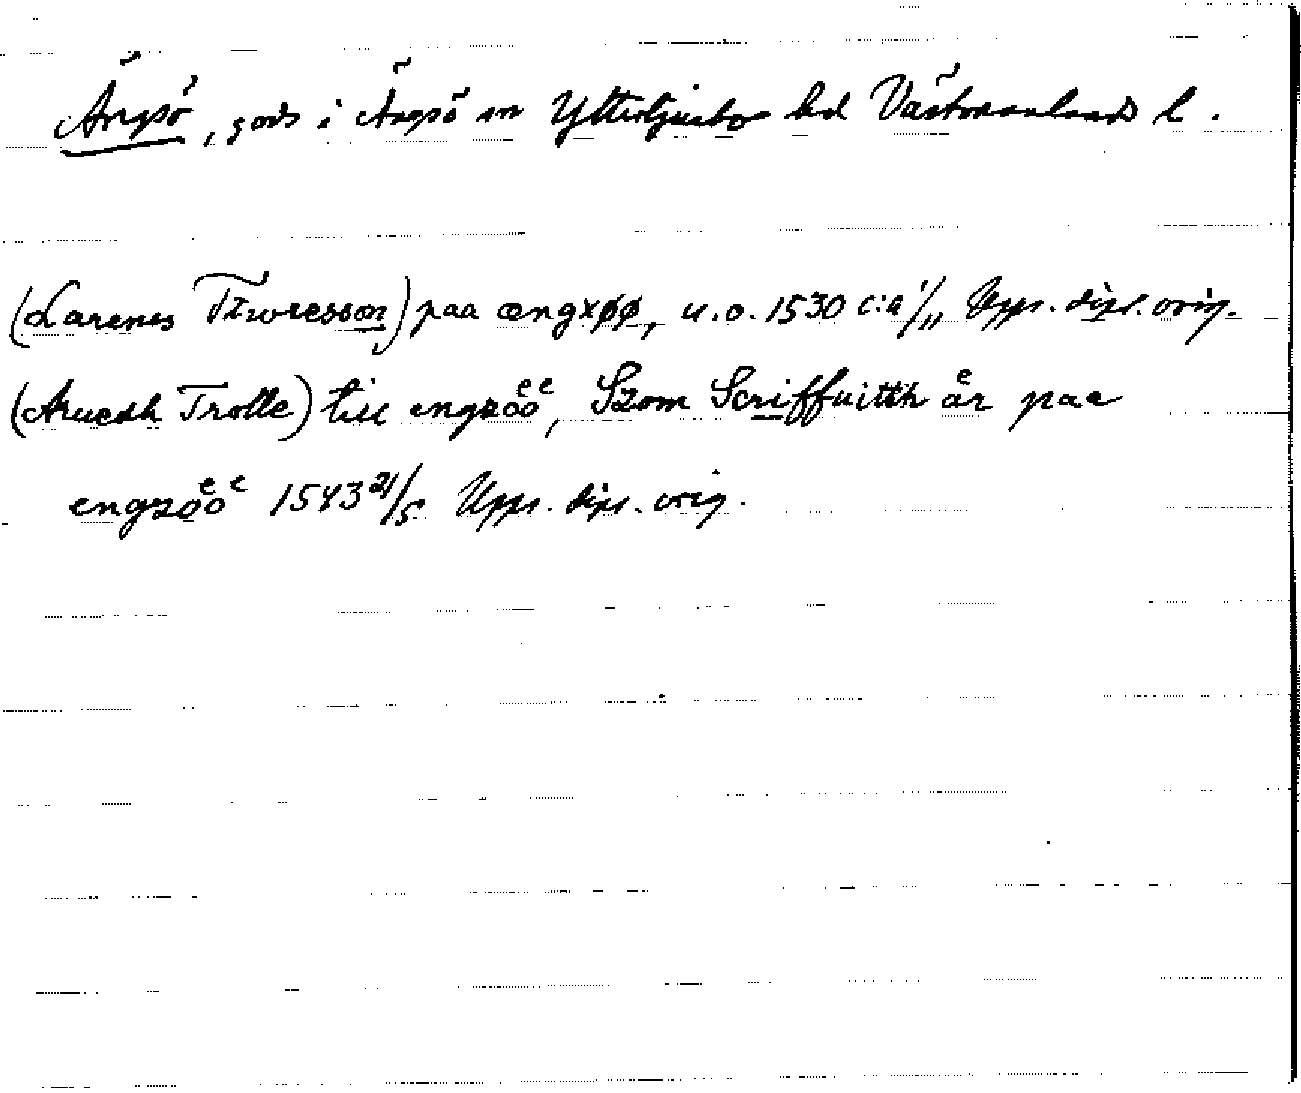 Ängsö, gods i Ängsö sn Yttertjurbo hd Västmanlands l.
(Larens Twresson) paa ængxøø, u.o. 1530 c:a 1/11 Upps. dipl. orig.
(Aruedh Trolle) till engzoͤoͤ, Szom Scriffuitth aͤr paa
engzoͤoͤ 1543 21/5 Upps. dipl. orig.